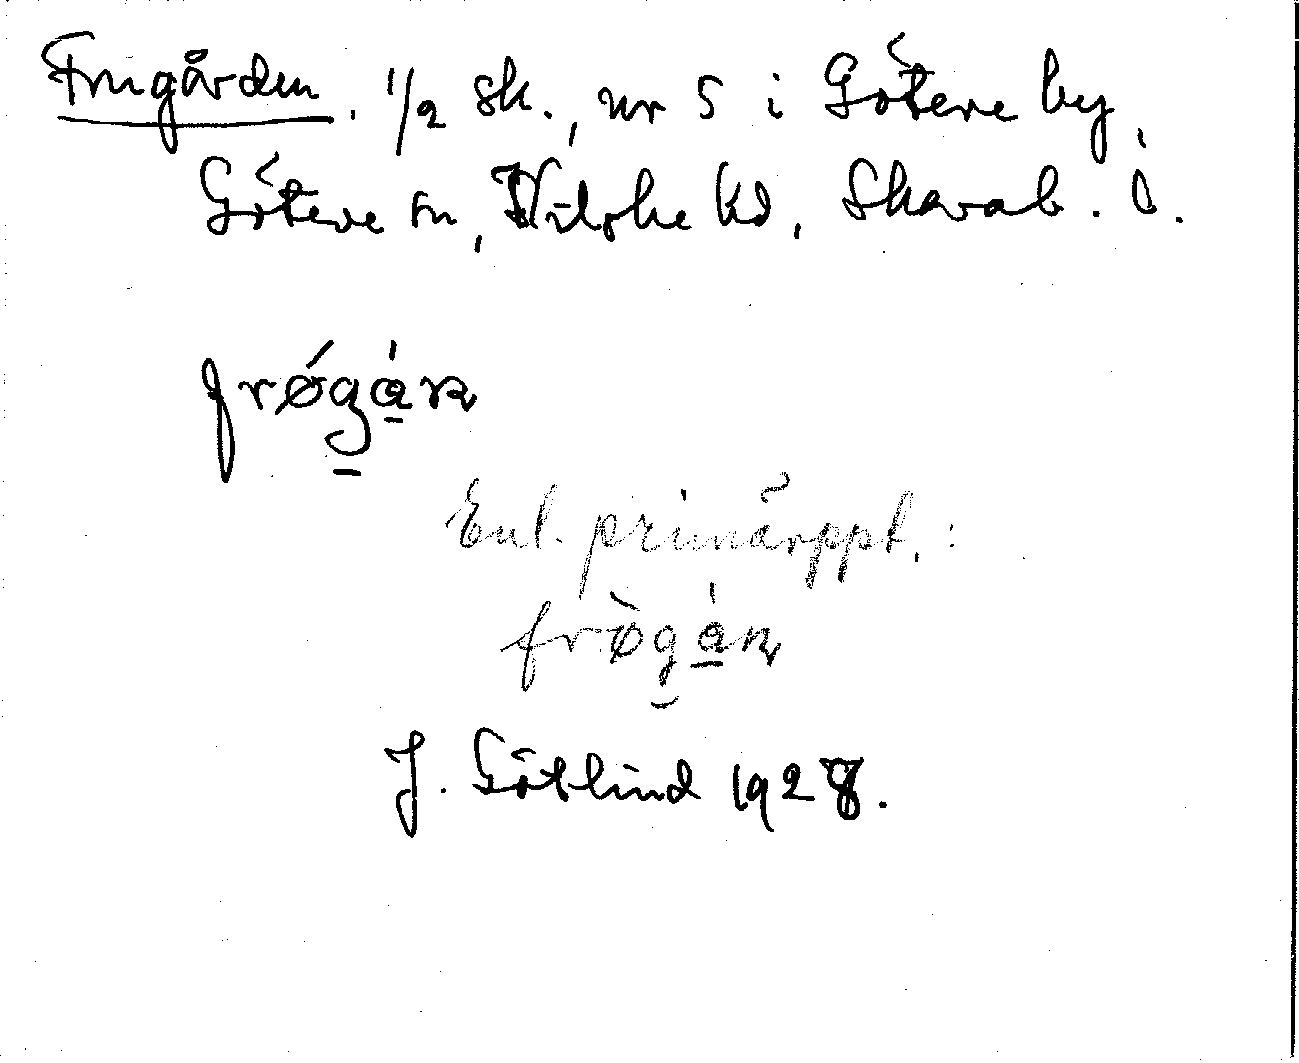 Frugården. 1/2 sk., nr 5 i Göteve by,
Göteve sn, Vilske hd, Skarab. l.
frøgán
Enl. primäruppt.:
frø̀gán
J. Götlind 1928.